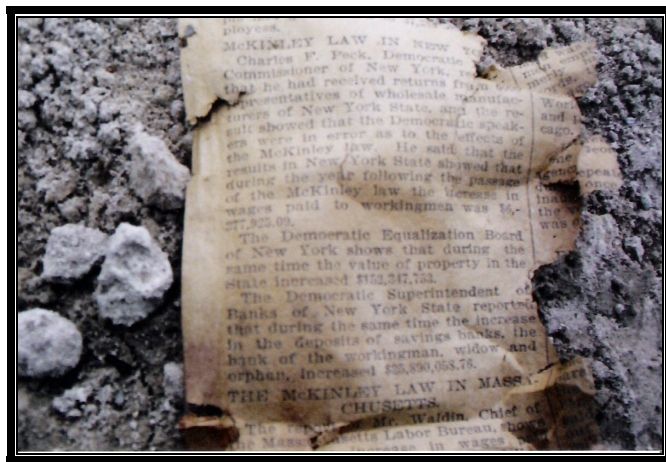 ployees.
McKINLEY LAW IN NEW YO
Charles F. Peck, Democratic
Commissioner of New York, re
that he had received returns from
representatives of wholesale manufac-
turers of New York State, and the re-
sult showed that the Democratic speak-
ers were in error as to the effects of
the McKinley law. He said that the
results in New York State showed that
during the year following the passage
of the McKinley law the increase in
wages paid to workingmen was $6,-
377,925.09.
The Democratic Equalization Board
of New York shows that during the
same time the value of property in the
State increased $152,347,753.
The Democratic Superintendent of
Banks of New York State reported
that during the same time the increase
in the deposits of savings banks, the
bank of the workingman, widow and
orphan, increased
THE McKINLEY LAW IN MASSA-
CHUSETTS.
The Mr. Waldin, Chief of
the Massachusetts Labor Bureau, shows
increase in wages,
merly
Work
and
cago.